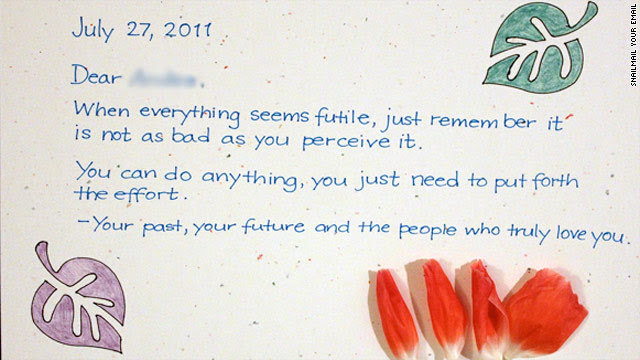 July 27, 2011
Dear
When everything seems futile, just remember it
is not as bad as you perceive it.
You can do anything, you just need to put forth
the effort.
-Your past, your future and the people who truly love you.
SNAILMAIL YOUR EMAIL